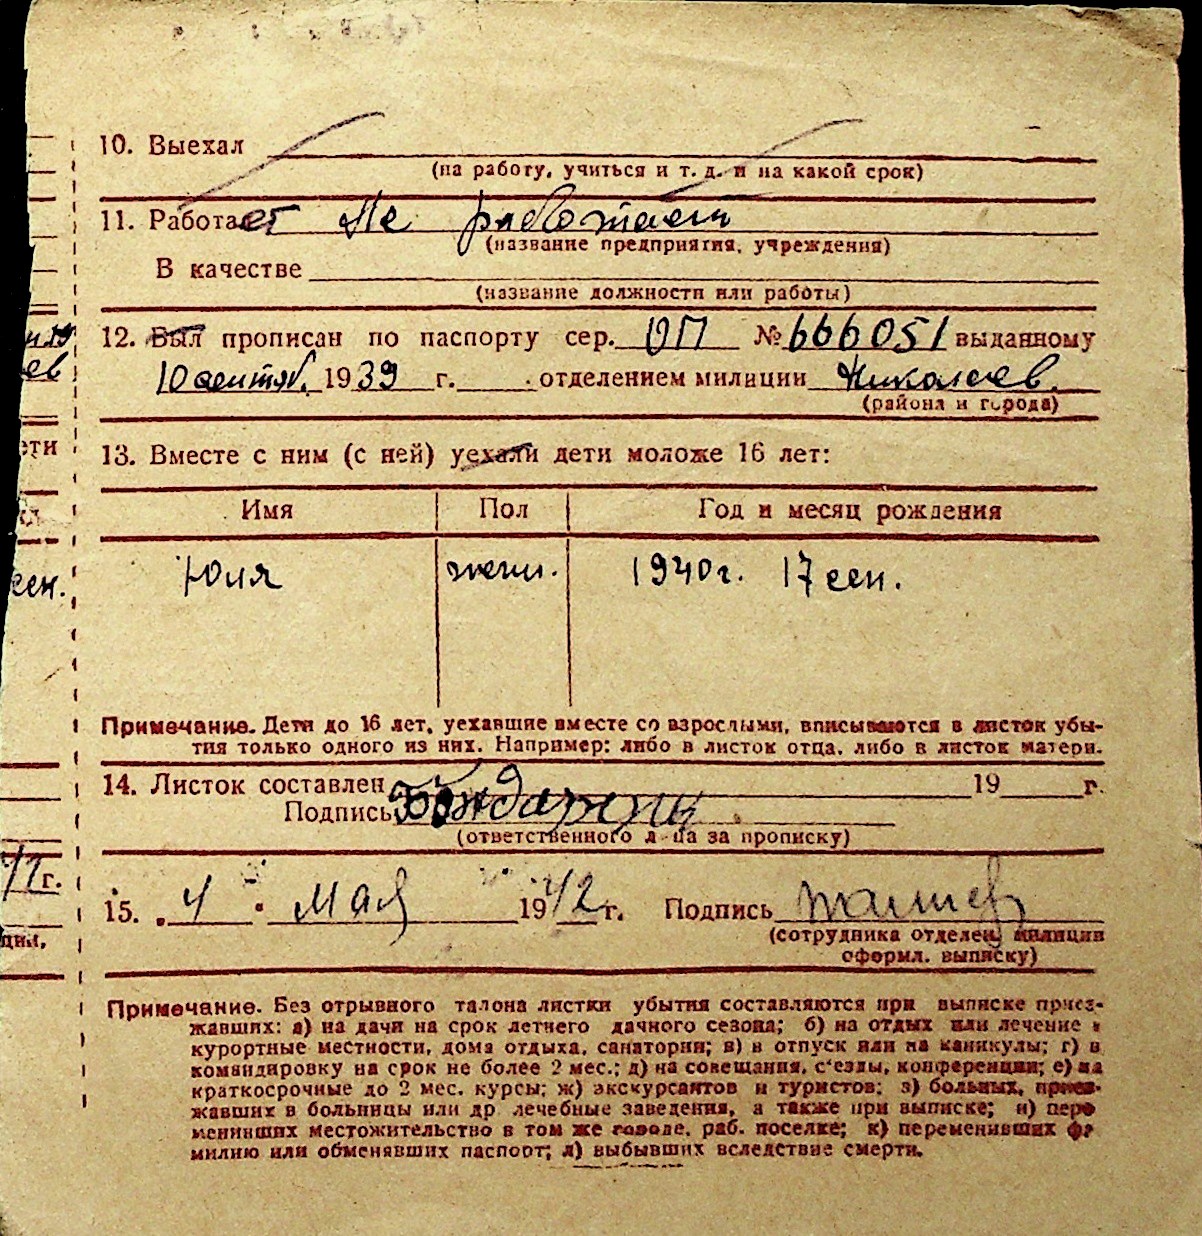 10. Выехал
(на работу, учиться и т. д. и на какой срок)
11. Работает Не работает
(название предприятия, учреждения)
В качестве
(название должности или работы)
12. Был прописан по паспорту сер. ОП № 666051 выданному
10 сентяб. 1939 г. отделением милиции Николаев.
(района и города)
13. Вместе с ним (с ней) уехали дети моложе 16 лет:
Имя Пол Год и месяц рождения
Юлия женш. 1940 г. 17 сен.
сен.
Примечание. Дети до 16 лет, уехавшие вместе со взрослыми, вписываются в листок убы-
тия только одного из них. Например: либо в листок отца, либо в листок матери.
14. Листок составлен 19 г.
Подпись
(ответственного лица за прописку)
15. 4 Мая 1942 г. Подпись
(сотрудника отделен. милиции
оформл. выписку)
Примечание. Без отрывного талона листки убытия составляются при выписке приез-
жавших: а) на дачи на срок летнего дачного сезона; б) на отдых или лечение в
курортные местности, дома отдыха, санатории; в) в отпуск или на каникулы; г) в
командировку на срок не более 2 мес.; д) на совещания, с'езды, конференции; е) на
краткосрочные до 2 мес. курсы; ж) экскурсантов и туристов; з) больных, приез-
жавших в больницы или др лечебные заведения, а также при выписке; и) пере
менивших местожительство в том же городе, раб. поселке; к) переменивших фа
милию или обменявших паспорт; л) выбывших вследствие смерти.